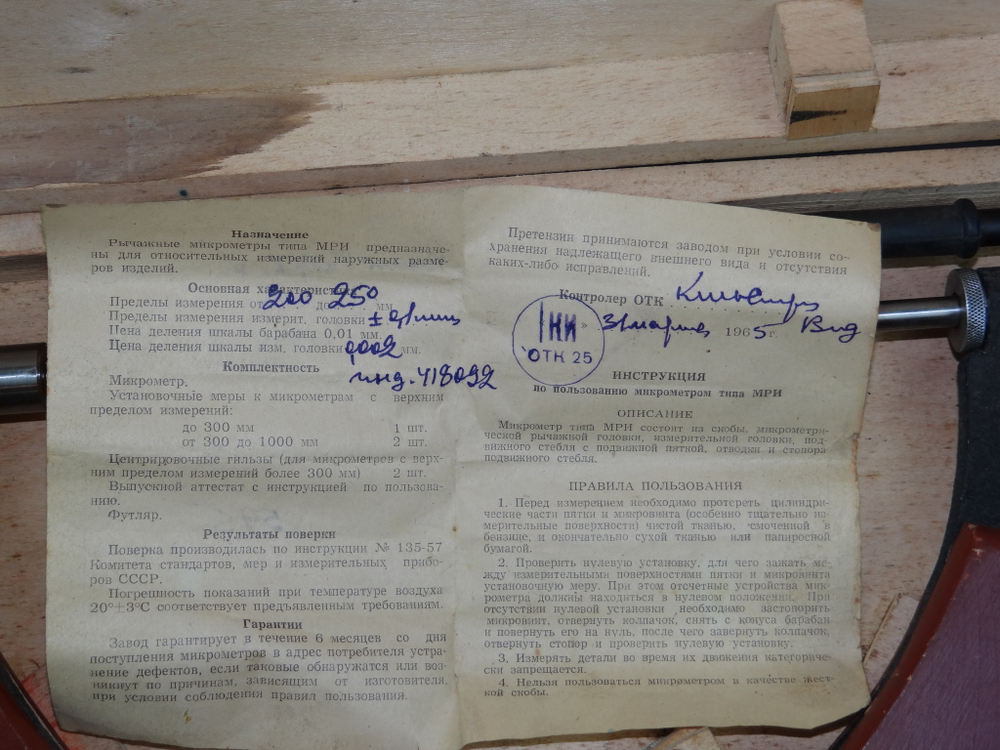 Назначение
Рычажные микрометры типа МРИ предназначе-
ны для относительных измерений наружных разме-
ров изделий.
Основная характеристика
Пределы измерения от 200 до 250 мм.
Пределы измерения измерит. головки ±
Цена деления шкалы барабана 0,01 мм.
Цена деления шкалы изм. головки 0,002 мм.
инд. 418092
Комплектность
Микрометр.
Установочные меры к микрометрам с верхним
пределом измерений:
до 300 мм 1 шт.
от 300 до 1000 мм 2 шт.
Центрировочные гильзы (для микрометров с верх-
ним пределом измерений более 300 мм) 2 шт.
Выпускной аттестат с инструкцией по пользова-
нию.
Футляр.
Результаты поверки
Поверка производилась по инструкции № 135-57
Комитета стандартов, мер и измерительных прибо-
ров СССР.
Погрешность показаний при температуре воздуха
20°±3°С соответствует предъявленным требованиям.
Гарантии
Завод гарантирует в течение 6 месяцев со дня
поступления микрометров в адрес потребителя устра-
нение дефектов, если таковые обнаружатся или воз-
никнут по причинам, зависящим от изготовителя,
при условии соблюдения правил пользования.
Претензии принимаются заводом при условии со-
хранения надлежащего внешнего вида и отсутствия
каких-либо исправлений.
Контролер ОТК
» 31 марта 1965 г.
КИ
ОТК 25
ИНСТРУКЦИЯ
по пользованию микрометром типа МРИ
ОПИСАНИЕ
Микрометр типа МРИ состоит из скобы, микрометри-
ческой рычажной головки, измерительной головки, под-
вижного стебля с подвижной пяткой, отводки и стопора
подвижного стебля.
ПРАВИЛА ПОЛЬЗОВАНИЯ
1. Перед измерением необходимо протереть цилиндри-
ческие части пятки и микровинта (особенно тщательно из-
мерительные поверхности) чистой тканью, смоченной в
бензине, и окончательно сухой тканью или папиросной
бумагой.
2. Проверить нулевую установку, для чего зажать ме-
жду измерительными поверхностями пятки и микровинта
установочную меру. При этом отсчетные устройства мик-
рометра должны находиться в нулевом положении. При
отсутствии нулевой установки необходимо застопорить
микровинт, отвернуть колпачок, снять с конуса барабан
и повернуть его на нуль, после чего завернуть колпачок,
отвернуть стопор и проверить нулевую установку.
3. Измерять детали во время их движения категориче-
ски запрещается.
4. Нельзя пользоваться микрометром в качестве жест-
кой скобы.